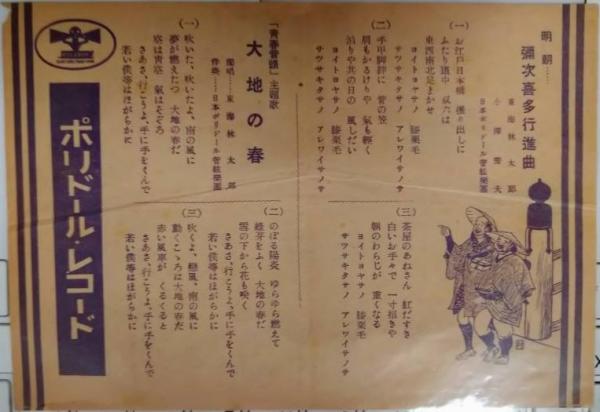 明朗……
彌次喜多行進曲
東海林太郎
小澤秀夫
日本ポリドール管絃樂團
(一) お江戸日本橋 振り出しに
ふたり道中
東西南北足まかせ
ヨイトコヤサノ 膝栗毛
サツサキタサノ アレワイサノサ
(二) 手甲脚絆に 菅の笠
肩もかるけりや 氣も輕く
泊りや其の日の 風しだい
ヨイトコヤサノ 膝栗毛
サツサキタサノ アレワイサノサ
(三) 茶屋のあねさん 紅だすき
白いお手々で 一寸招きや
朝のわらじが 重くなる
ヨイトコヤサノ 膝栗毛
サツサキタサノ アレワイサノサ
「青春音頭」主題歌
大地の春
獨唱……東海林太郎
伴奏……日本ポリドール管絃樂團
(一) 吹いた、吹いたよ、南の風に
夢が燃えたつ 大地の春だ
空は青空 氣はそぞろ
さあさ、行こうよ、手に手をくんで
若い僕等はほがらかに
(二) のぼる陽炎 ゆらゆら燃えて
綠芽をふく 大地の春だ
雪の下から花も咲く
さあさ、行こうよ、手に手をくんで
若い僕等はほがらかに
(三) 吹くよ、南の風に
動くこゝろに大地の春だ
赤い風車が くるくると
さあさ、行こうよ、手に手をくんで
若い僕等はほがらかに
ポリドール・レコード